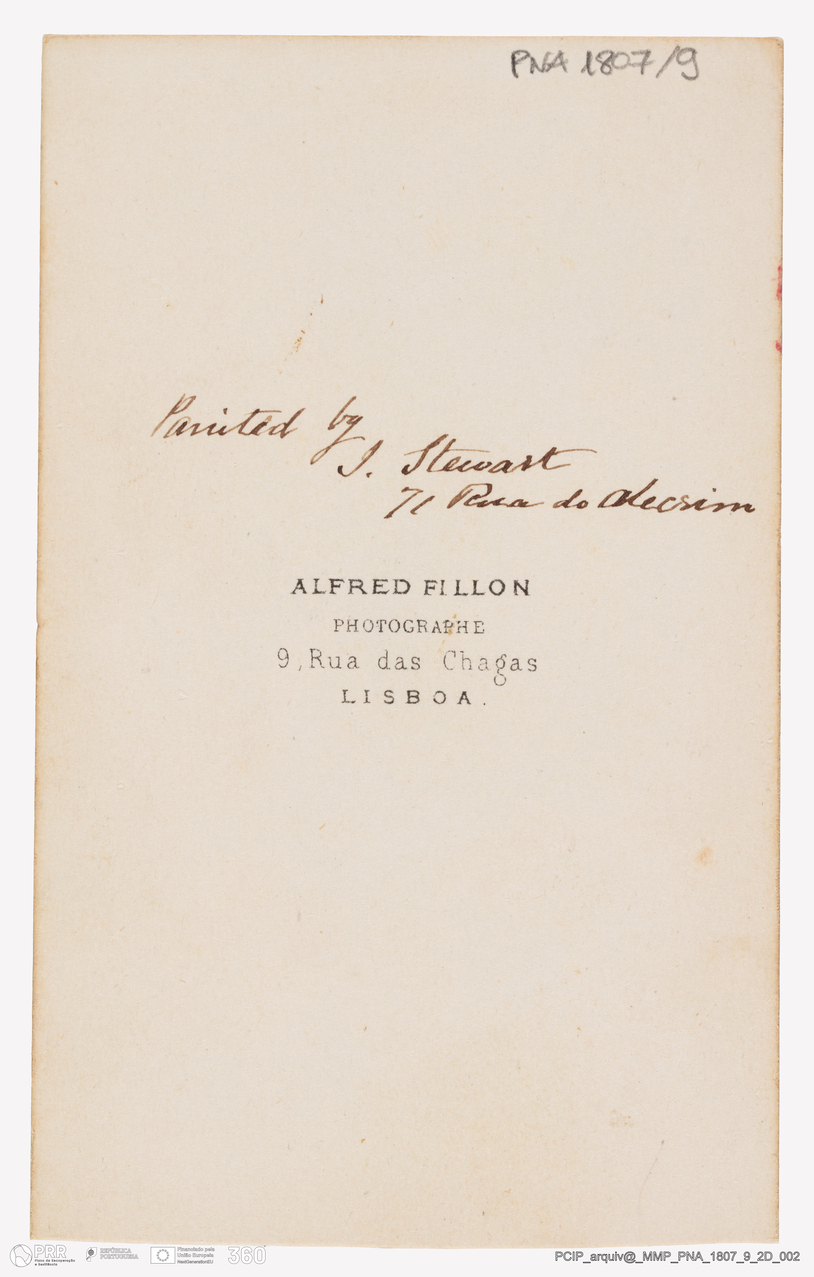 PNA 1807/9
Painted by
J. Stewart
71 Rua do Alecrim
ALFRED FILLON
PHOTOGRAPHE
9, Rua das Chagas
LISBOA.
PRR
Plano de Recuperação
e Resiliência
REPÚBLICA
PORTUGUESA
Financiado pela
União Europeia
NextGenerationEU
360
PCIP_arquiv@_MMP_PNA_1807_9_2D_002